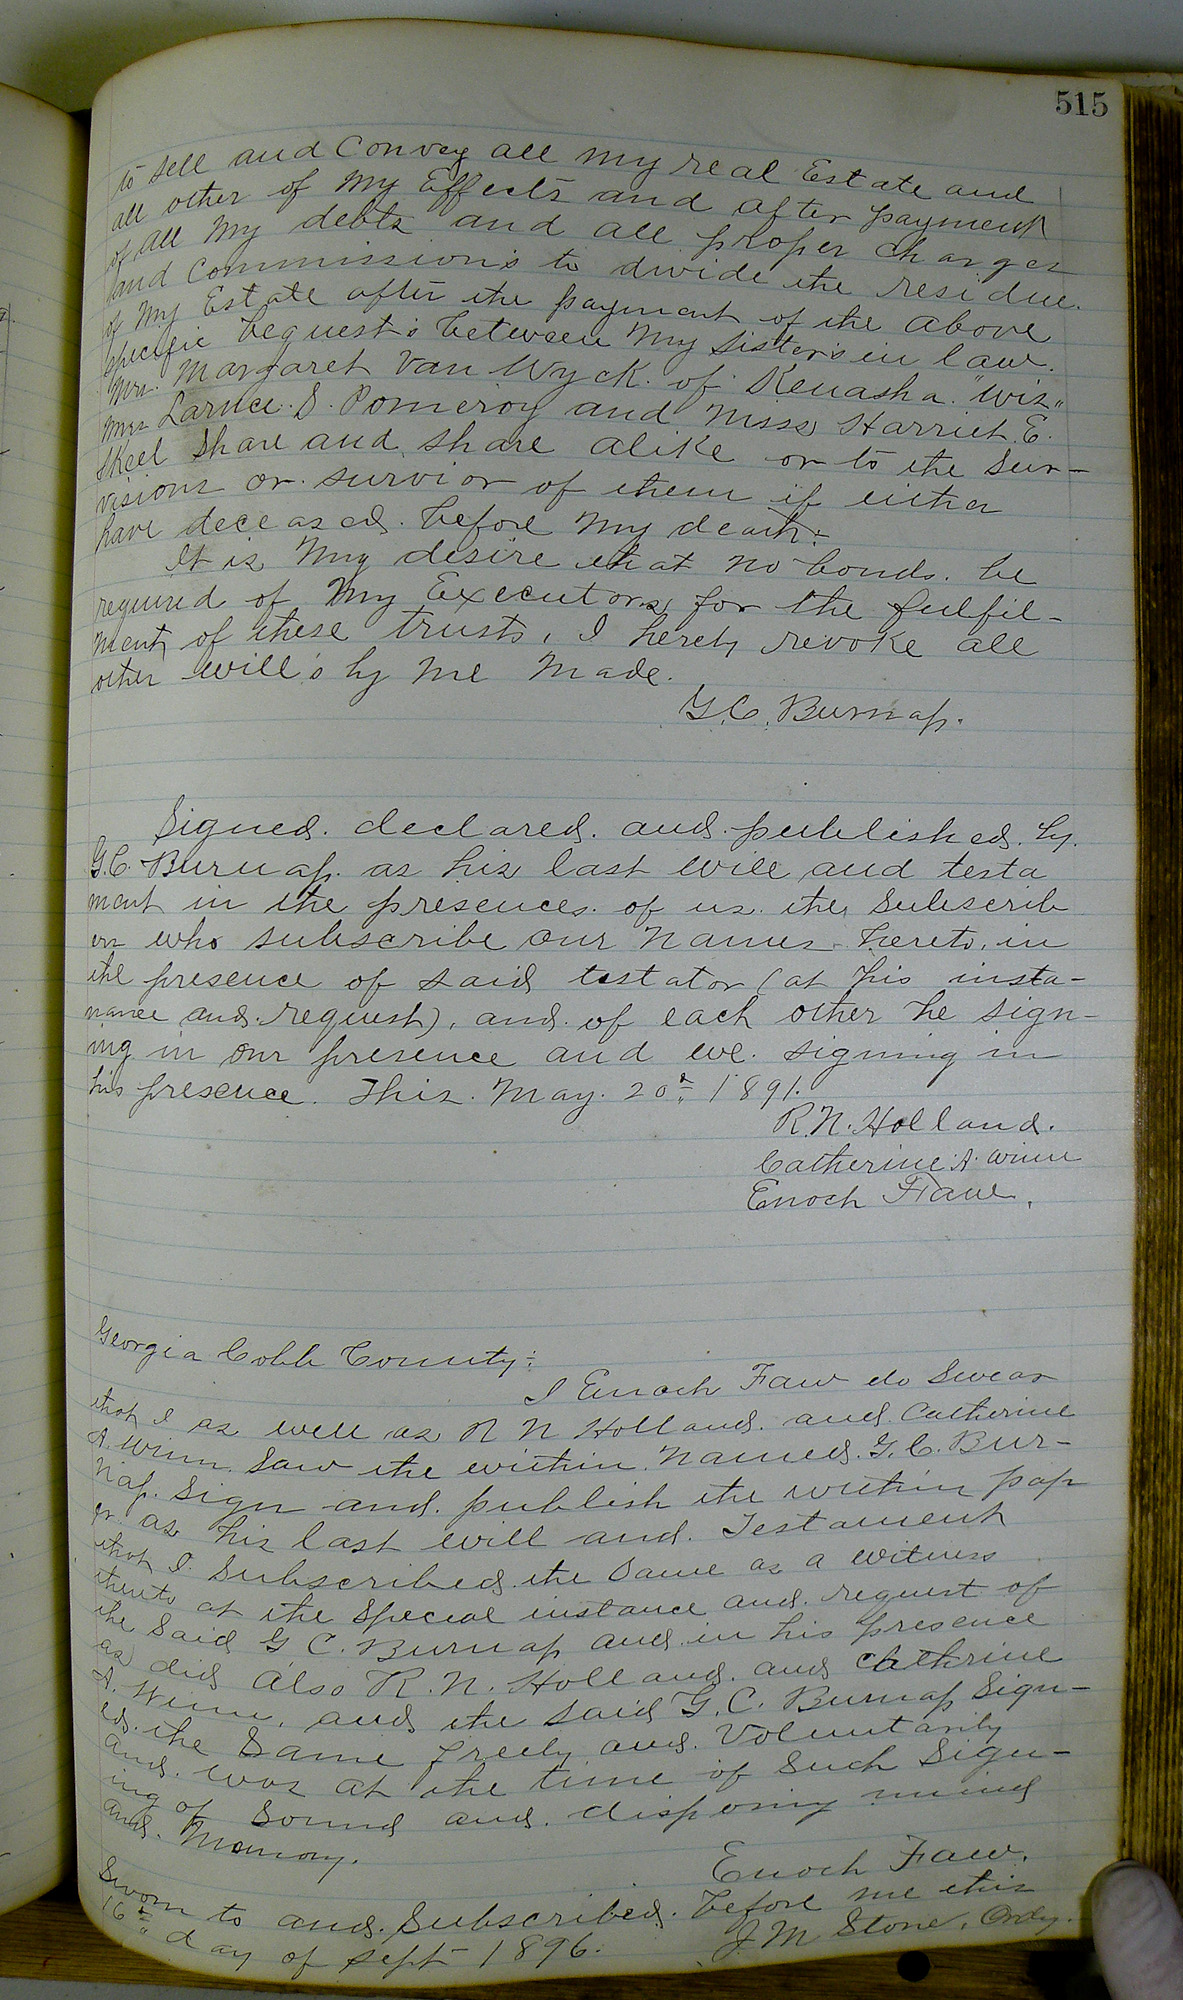 515
to sell and Convey all my real Estate and
all other of My Effects and after payment
of all My debts and all proper Charges
and Commissions to divide the residue
of My Estate after the payment of the above
specific bequests between My Sisters in law.
Mrs. Margaret Van Wyck. of Kenasha "Wis"
Mrs S. Pomeroy and Miss Harriet. E.
Skeel Share and Share alike or to the Sur-
visions or. survior of them if either
have deceased. before My death.
It is My desire that no bonds. be
required of My Executors for the fulfil-
ment of these trusts, I hereby revoke all
other will's by Me Made.
G.C. Burnap.
Signed. declared. and. published. by.
G.C. Burnap. as his last will and testa
ment in the presences. of us. the Subscrib
ers who subscribe our Names. hereto. in
the presence of said testator (at his insta-
nance and. request), and. of each other he sign-
ing in our presence and we. signing in
his presence. This. May. 20th 1891.
R.N. Holland.
Catherine A. Winn
Enoch Faw.
Georgia Cobb County:
I Enoch Faw do Swear
that I as well as R N Holland. and. Catherine
A. Winn. Saw the within. Named. G.C. Bur-
nap. Sign and. publish the within pap
er. as his last will and. Testament
that I. Subscribed. the Same as a witness
thereto at the Special instance and. request of
the Said G C. Burnap and in his presence
as did also R. N. Holland. and Cathrine
A. Winn, and the said G.C. Burnap Sign-
ed. the Same freely and. Voluntarily
and. was at the time of Such Sign-
ing of Sound and. disposing mind
and. Memory.
Enoch Faw.
Sworn to and. Subscribed. before me this
16th day of Sept 1896.
J M Stone, Ordy.